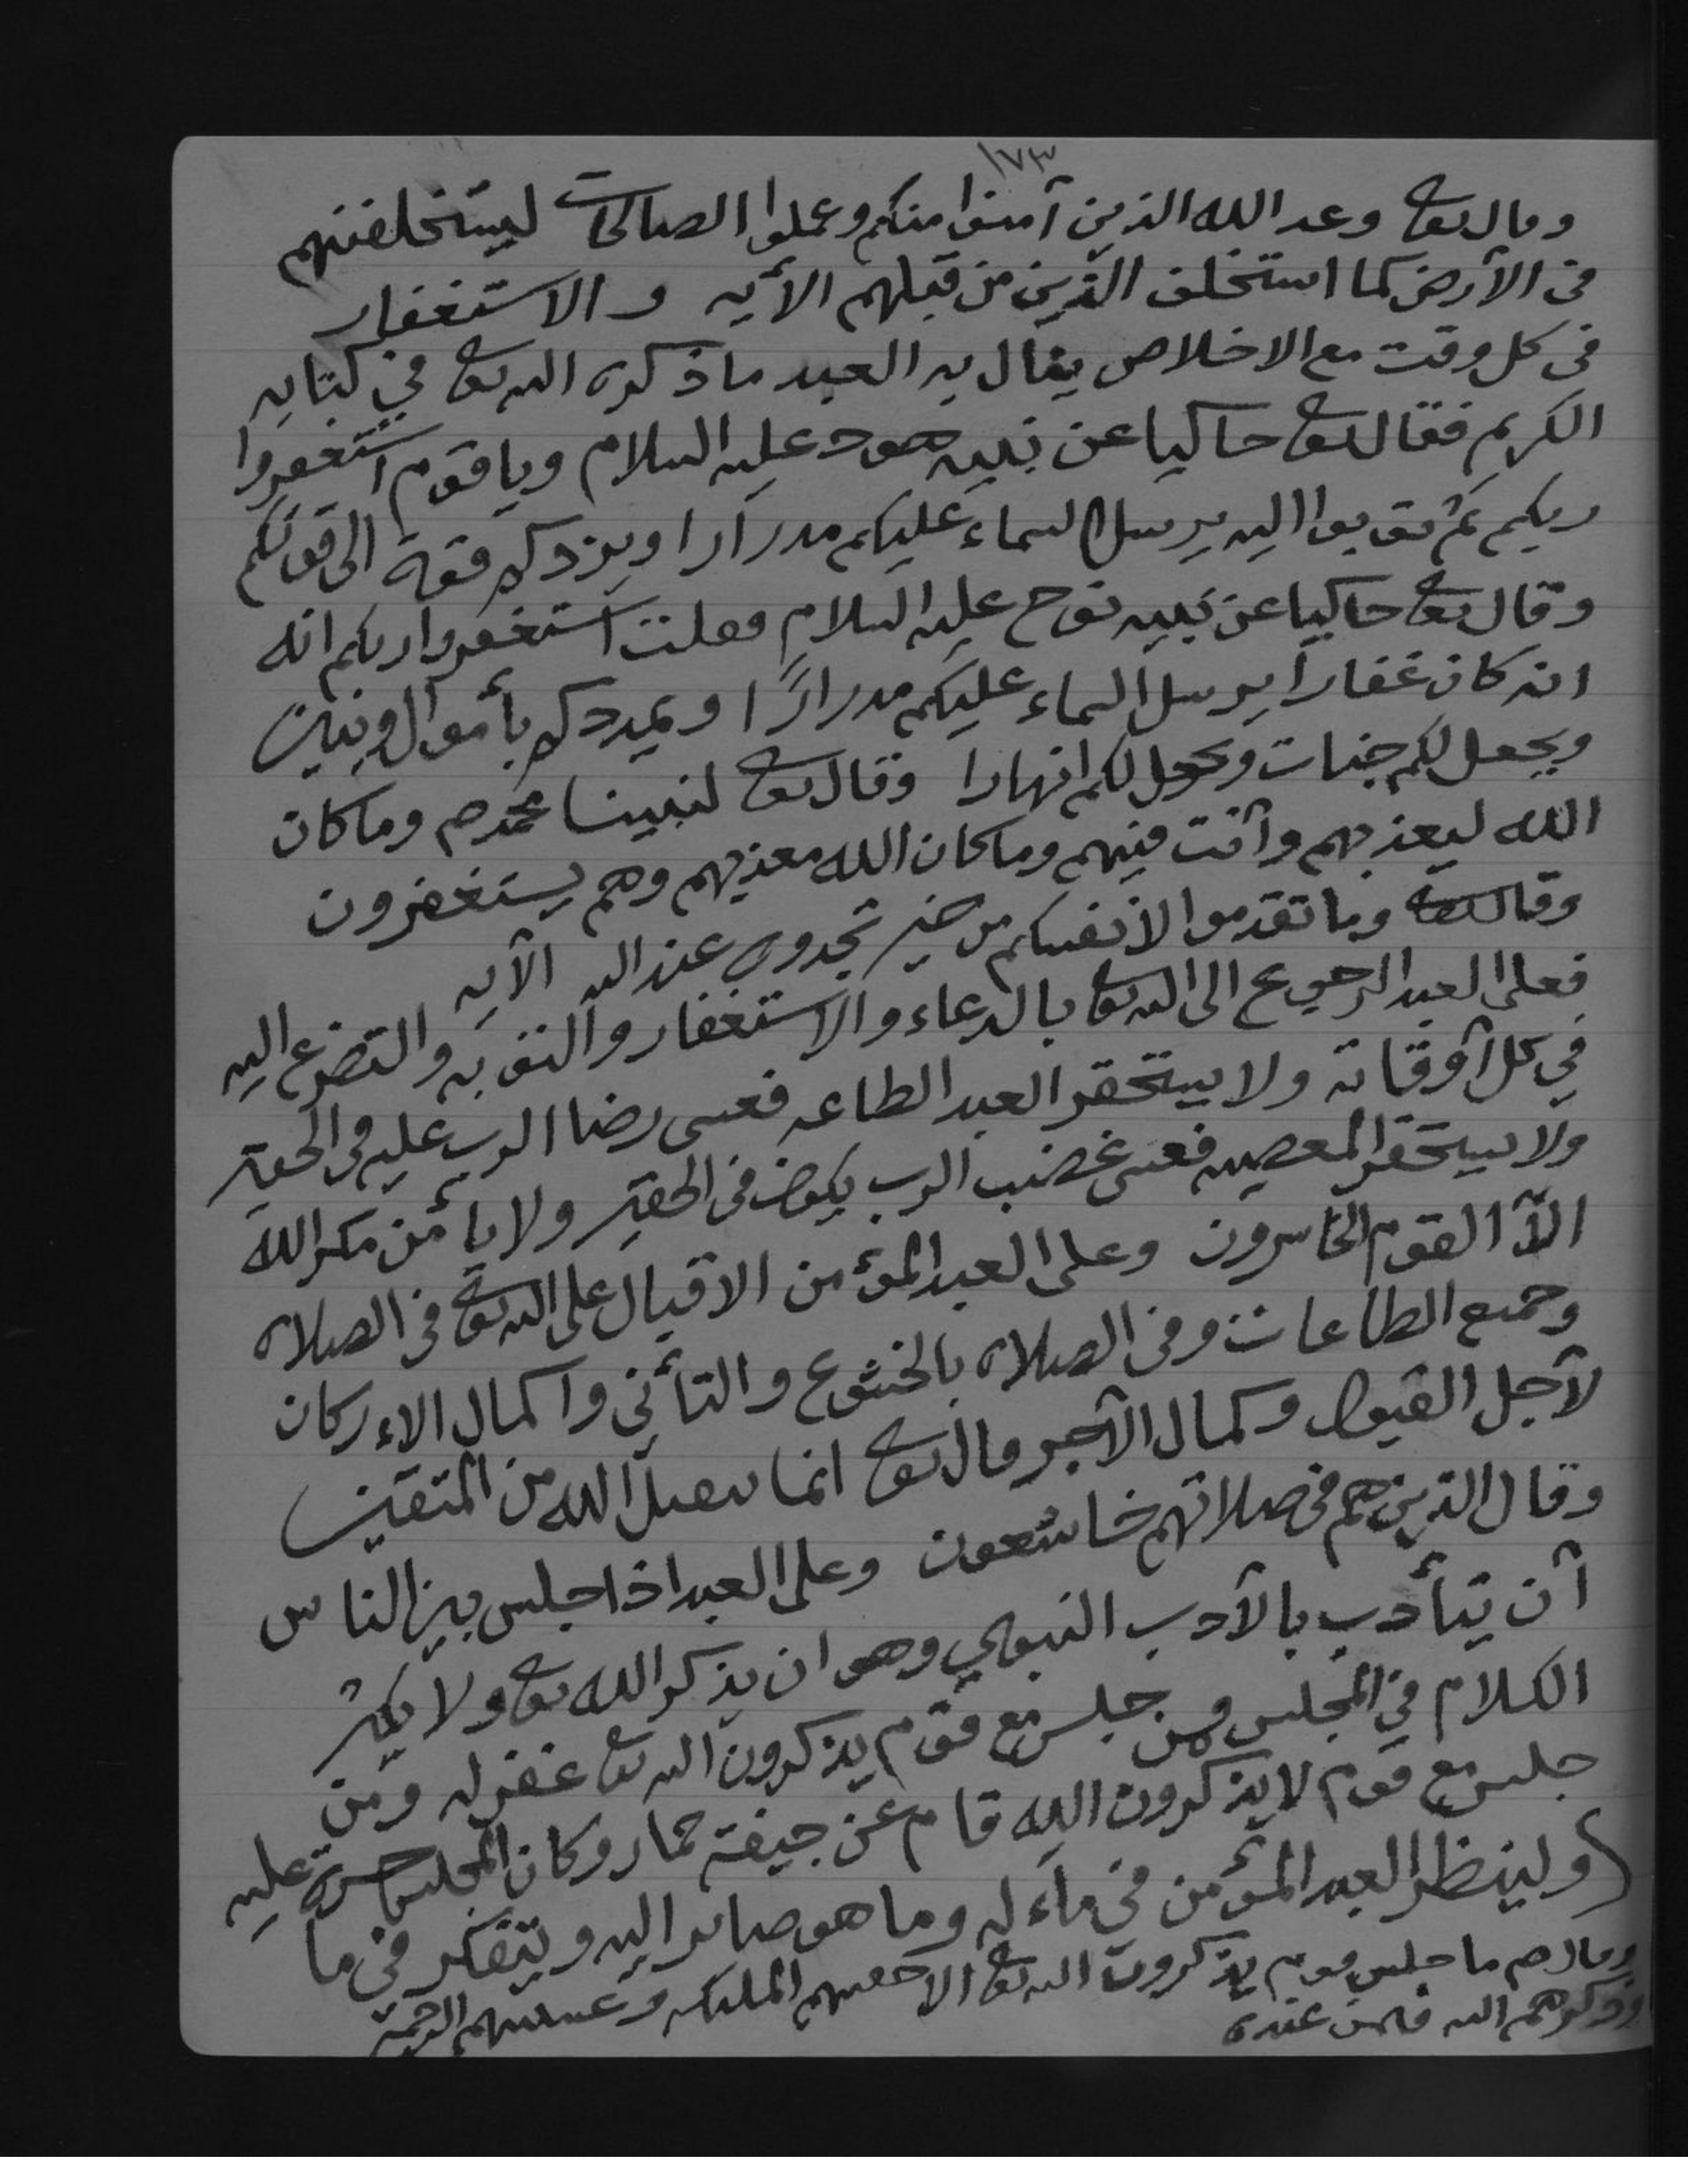 ١٧٣
وقال تعا وعد الله الذين آمنوا منكم وعملوا الصالحات ليستخلفنهم
في الأرض كما استخلف الذين من قبلهم الآيه والاستغفار
في كل وقت مع الاخلاص ينال به العبد ما ذكره الله تعا في كتابه
الكريم فقال تعا حاكيا عن نبيه هود عليه السلام ويا قوم استغفروا
ربكم ثم توبوا اليه يرسل السماء عليكم مدرارا ويزدكم قوة الى قوتكم
وقال تعا حاكيا عن نبيه نوح عليه السلام فقلت استغفروا ربكم انه
انه كان غفارا يرسل السماء عليكم مدرارًا ويمددكم بأموال وبنين
ويجعل لكم جنات ويجعل لكم انهارا وقال تعا لنبينا محمد ص وما كان
الله ليعذبهم وأنت فيهم وما كان الله معذبهم وهم يستغفرون
وقال تعا وما تقدموا لأنفسكم من خير تجدوه عند الله الآيه
فعلى العبد الرجوع الى الله تعا بالدعاء والاستغفار والتوبه والتضرع اليه
في كل أوقاته ولا يستحقر العبد الطاعه فعسى رضا الرب عليه في الحقير
ولا يستحقر المعصيه فعسى غضب الرب يكون في الحقير ولا يأمن مكر الله
الّا القوم الخاسرون وعلى العبد المؤمن الاقبال على الله تعا في الصلاه
وجميع الطاعات وفي الصلاه بالخشوع والتأني واكمال الاءركان
لأجل القبول وكمال الأجر قال تعا انما يتقبل الله من المتقين
وقال الذين هم في صلاتهم خاشعون وعلى العبد اذا جلس بين الناس
أن يتأدب بالأدب النبوي وهو ان يذكر الله تعا ولا يكثر
الكلام في المجلس ومن جلس مع قوم يذكرون الله تعا غفر له ومن
جلس مع قوم لا يذكرون الله قام عن جيفة حمار وكان المجلس حسرة عليه
ولينظر العبد المؤمن في مآءله وما هو صائر اليه ويتفكر في ما
وقال ص ما جلس قوم يذكرون الله تعا الا حفتهم الملئكه وغشيتهم الرحمة
وذكرهم الله فيمن عنده